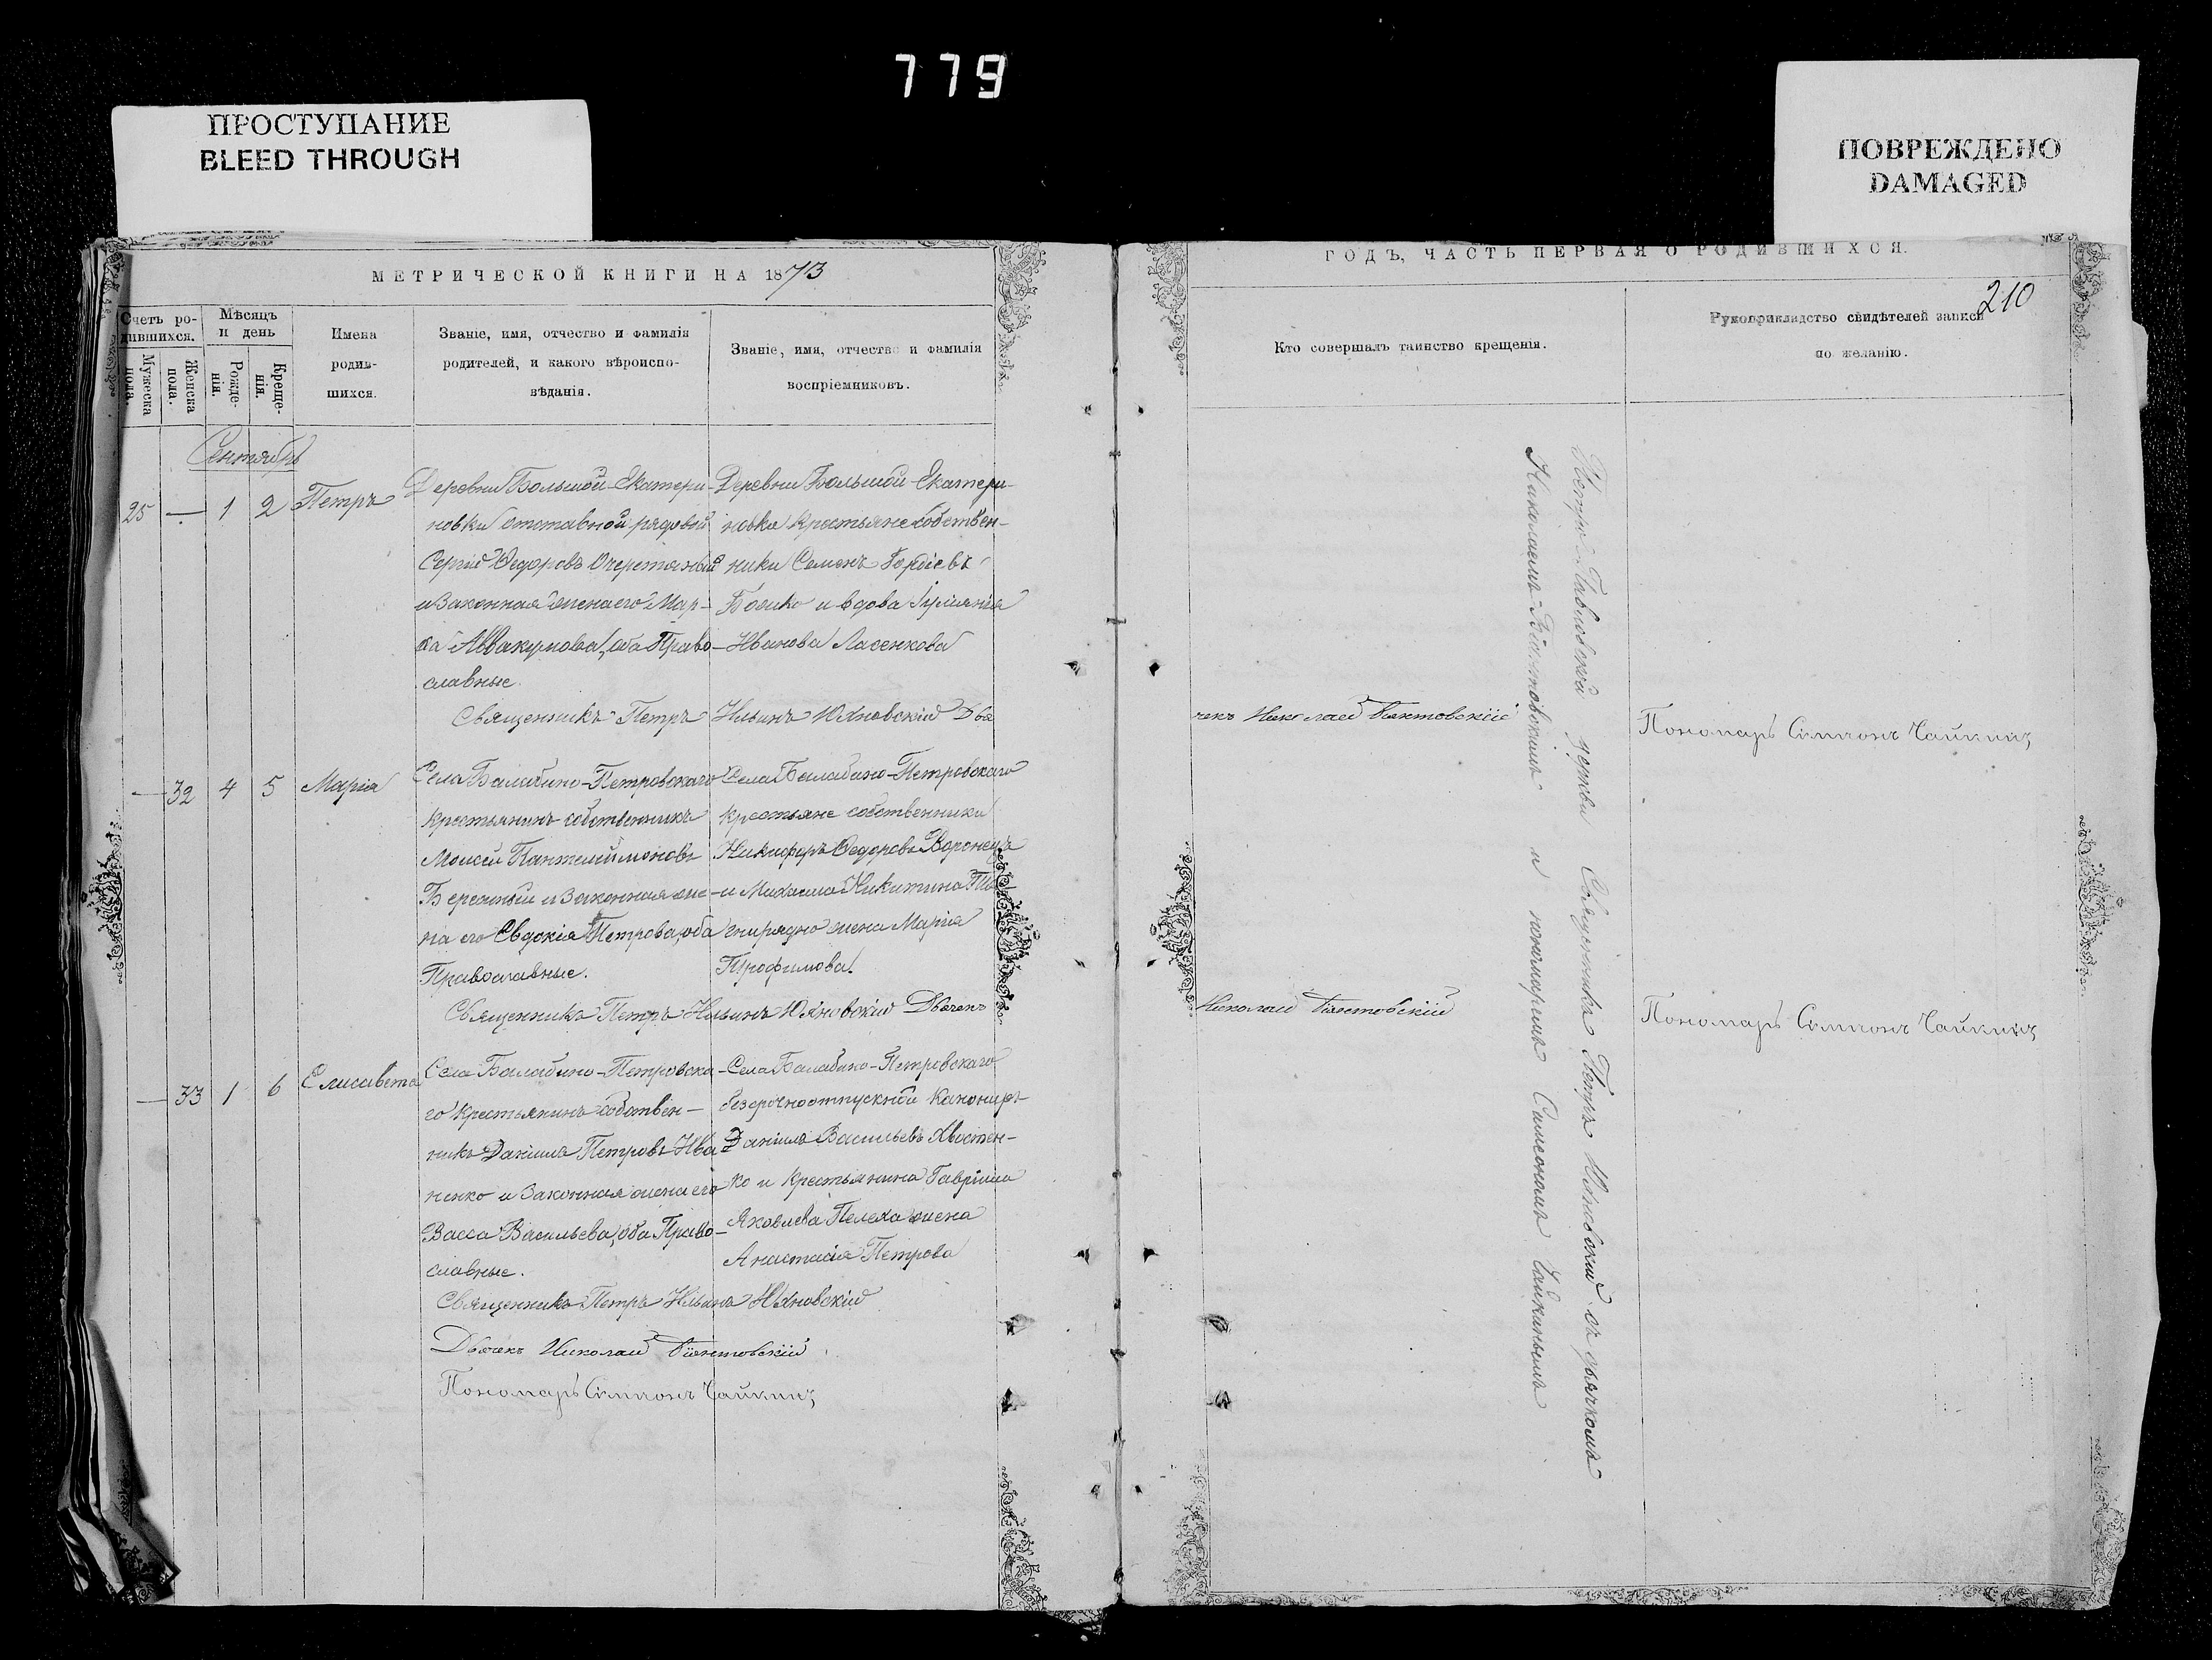 779
ПРОСТУПАНИЕ
BLEED THROUGH
ПОВРЕЖДЕНО
DAMAGED
МЕТРИЧЕСКОЙ КНИГИ НА 1873
Счетъ ро-
дившихся.
Мужеска
пола.
Женска
пола.
Мѣсяцъ
и день
Рожде-
нія.
Креще-
нія.
Имена
родив-
шихся.
Званіе, имя, отчество и фамилія
родителей, и какого вѣроиспо-
вѣданія.
Званіе, имя, отчество и фамилія
воспріемниковъ.
Сентябрь
25 — 1 2 Петръ
Деревни Большой-Екатери-
новки отставной рядовой
Сергій Ѳедоровъ Очеретяный
и законная жена его Мар-
ѳа Аввакумова, оба Право-
славные.
Деревни Большой Екатери-
новки крестьяне собствен-
ники Семенъ Гордіевъ
Бойко и вдова Іуліанія
Иванова Ласенкова
Священникъ Петръ Ильинъ Юхновскій Дья
— 32 4 5 Марія
Села Балабино-Петровскаго
крестьянинъ собственникъ
Моисей Пантелеймоновъ
Березный и законная же-
на его Евдокія Петрова, оба
Православные.
Села Балабино-Петровскаго
крестьяне собственники
Никифоръ Ѳедоровъ Воронецъ
и Михаила Никитина
жена Марія
Трофимова.
Священникъ Петръ Ильинъ Юхновскій Дьячекъ
— 33 1 6 Елисавета
Села Балабино-Петровска-
го крестьянинъ собствен-
никъ Даніилъ Петровъ Ива
ненко и законная жена его
Васса Васильева, оба Право-
славные.
Села Балабино-Петровскаго
безсрочноотпускной канониръ
Даніилъ Васильевъ Хвостен-
ко и крестьянина Гавріила
Яковлева Пелеха жена
Анастасія Петрова
Священникъ Петръ Ильинъ Юхновскій
Дьячекъ Николай Піонтовскій
Пономарь Симеонъ Чайкинъ
ГОДЪ, ЧАСТЬ ПЕРВАЯ О РОДИВШИХСЯ.
210
Кто совершалъ таинство крещенія.
Рукоприкладство свидѣтелей записи
по желанію.
Петро-Павловской церкви Священникъ Петръ Юхновскій съ дьячкомъ
Николаемъ Піонтовскимъ и пономаремъ Симеономъ Чайкинымъ
чекъ Николай Піонтовскій
Пономарь Симеонъ Чайкинъ
Николай Піонтовскій
Пономарь Симеонъ Чайкинъ